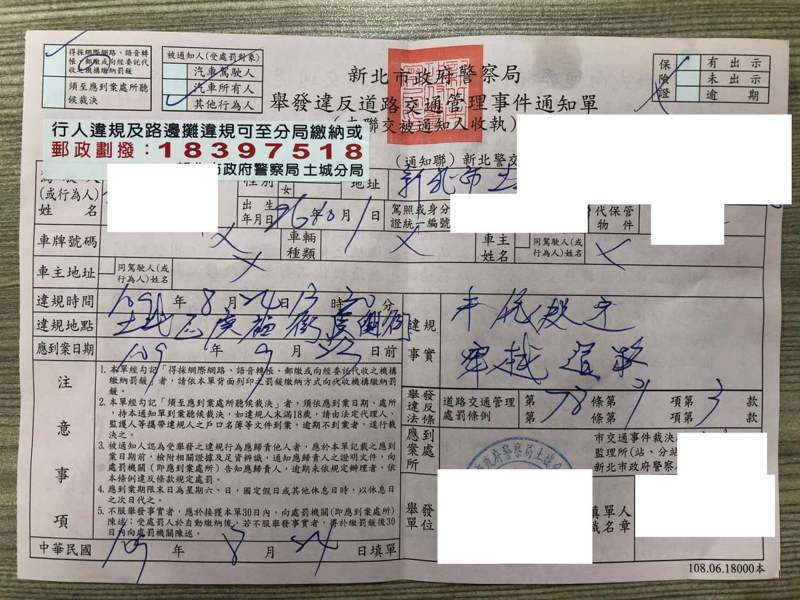 得採網際網路、語音轉
帳、郵繳或向經委託代
收之機構繳納罰鍰
須至應到案處所聽
候裁決
被通知人(受處罰對象)
汽車駕駛人
汽車所有人
其他行為人
新北市政府警察局
舉發違反道路交通管理事件通知單
交被通知人收執)
保險證
有出示
未出示
逾期
行人違規及路邊攤違規可至分局繳納或
郵政劃撥:18397518
新北市政府警察局 土城分局
(通知聯) 新北警交
(或行為人)
姓名
性別
女
地址
新北市土
出生
年月日
10月1日
駕照或身分
證統一編號
代保管
物件
車牌號碼
車輛
種類
車主
姓名
同駕駛人(或
行為人)姓名
車主地址
同駕駛人(或
行為人)地址
違規時間
109年8月24日13時20分
違規地點
土城區
應到案日期
109年9月23日前
違規
事實
穿越道路
舉發
違反
法條
道路交通管理
處罰條例
第78條第1項第3款
應到
案處
所
市交通事件裁決
監理所(站、分站
新北市政府警察
舉發
單位
填單人
職名章
注意事項
1.本單經勾記「得採網際網路、語音轉帳、郵繳或向經委託代收之機構
繳納罰鍰」者,請依本單背面列印之罰鍰繳納方式向代收機構繳納罰
鍰。
2.本單經勾記「須至應到案處所聽候裁決」者,須依應到案日期、處所,
持本通知單到案聽候裁決,如違規人未滿18歲,請由法定代理人、
監護人等攜帶違規人之戶口名簿等文件到案,逾期不到案者,逕行裁
決之。
3.被通知人認為受舉發之違規行為應歸責他人者,應於本單記載之應到
案日期前,檢附相關證據及足資辨識、通知應歸責人之證明文件,向
處罰機關(即應到案處所)告知應歸責人,逾期未依規定辦理者,依
本條例違反條款規定處罰。
4.應到案期限末日為星期六、日、國定假日或其他休息日時,以休息日
之次日代之。
5.不服舉發事實者,應於接獲本單30日內,向處罰機關(即應到案處所)
陳述;受處罰人於自動繳納後,若不服舉發事實者,得於繳罰鍰後30
日內向處罰機關陳述。
中華民國109年8月24日填單
108.06.18000本